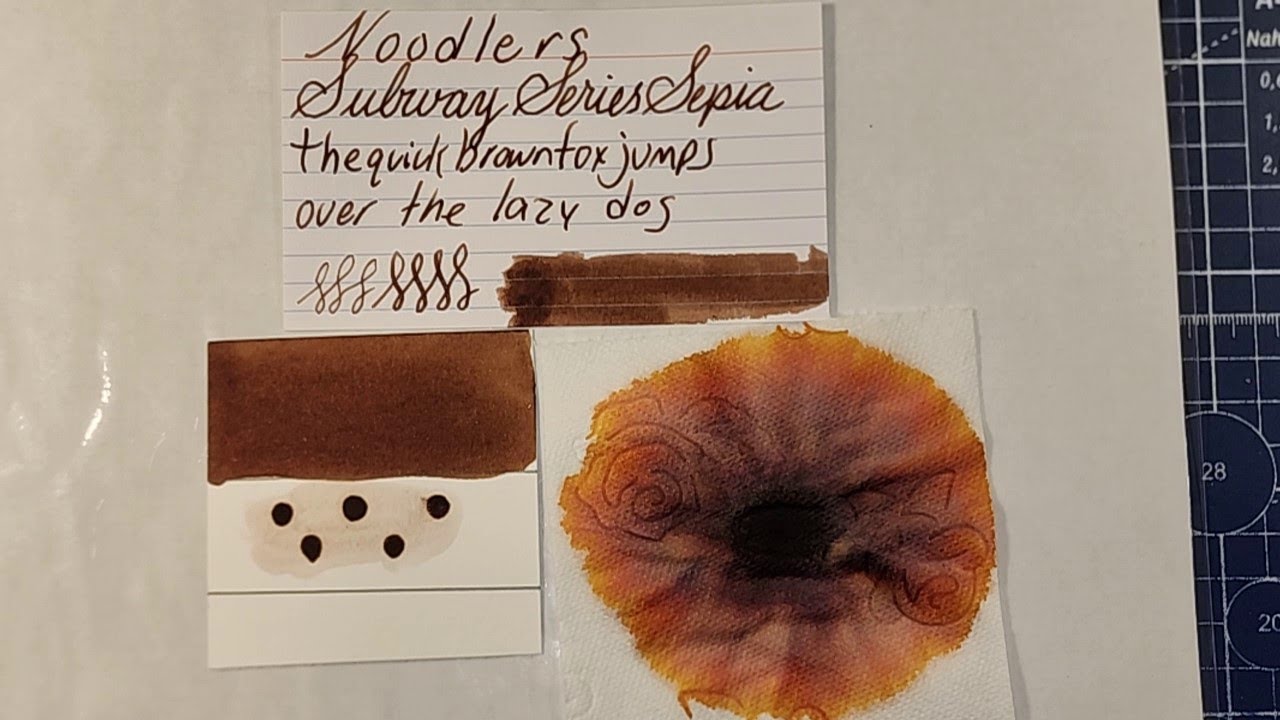 Noodlers
Subway Series Sepia
the quick brown fox jumps
over the lazy dog
Nah
0,
1,
2,
28
20